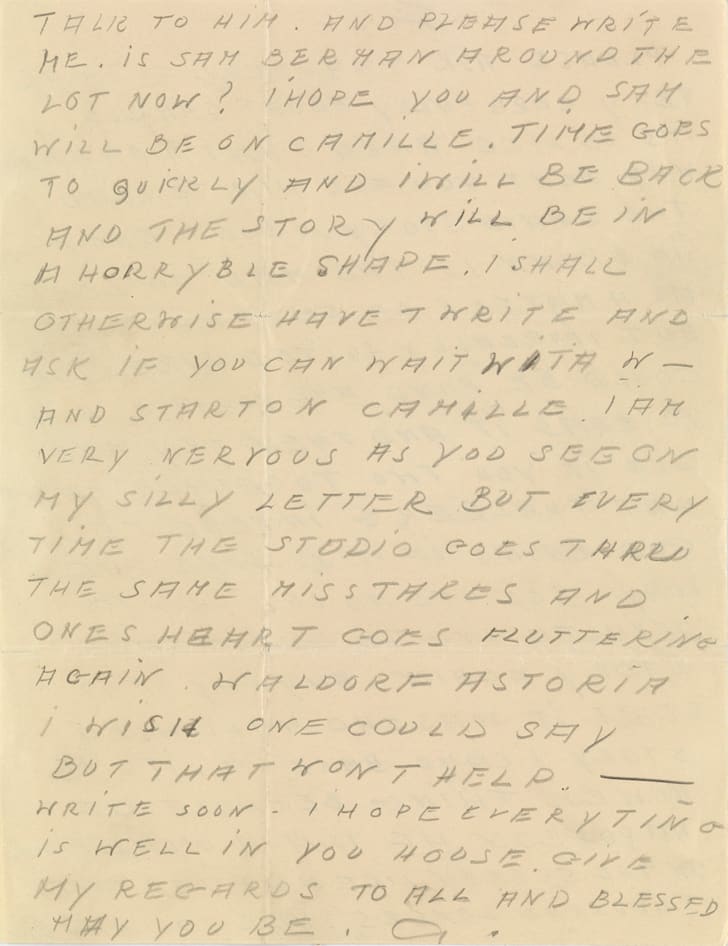 TALK TO HIM. AND PLEASE WRITE
ME. IS SAM BERMAN AROUND THE
LOT NOW? I HOPE YOU AND SAM
WILL BE ON CAMILLE. TIME GOES
TO QUICKLY AND I WILL BE BACK
AND THE STORY WILL BE IN
A HORRYBLE SHAPE. I SHALL
OTHERWISE HAVE T WRITE AND
ASK IF YOU CAN WAIT WITH W —
AND START ON CAMILLE. I AM
VERY NERVOUS AS YOU SEE ON
MY SILLY LETTER BUT EVERY
TIME THE STUDIO GOES THRU
THE SAME MISSTAKES AND
ONES HEART GOES FLUTTERING
AGAIN. WALDORF ASTORIA
I WISH ONE COULD SAY
BUT THAT WONT HELP. —
WRITE SOON - I HOPE EVERYTING
IS WELL IN YOU HOUSE. GIVE
MY REGARDS TO ALL AND BLESSED
MAY YOU BE. G.